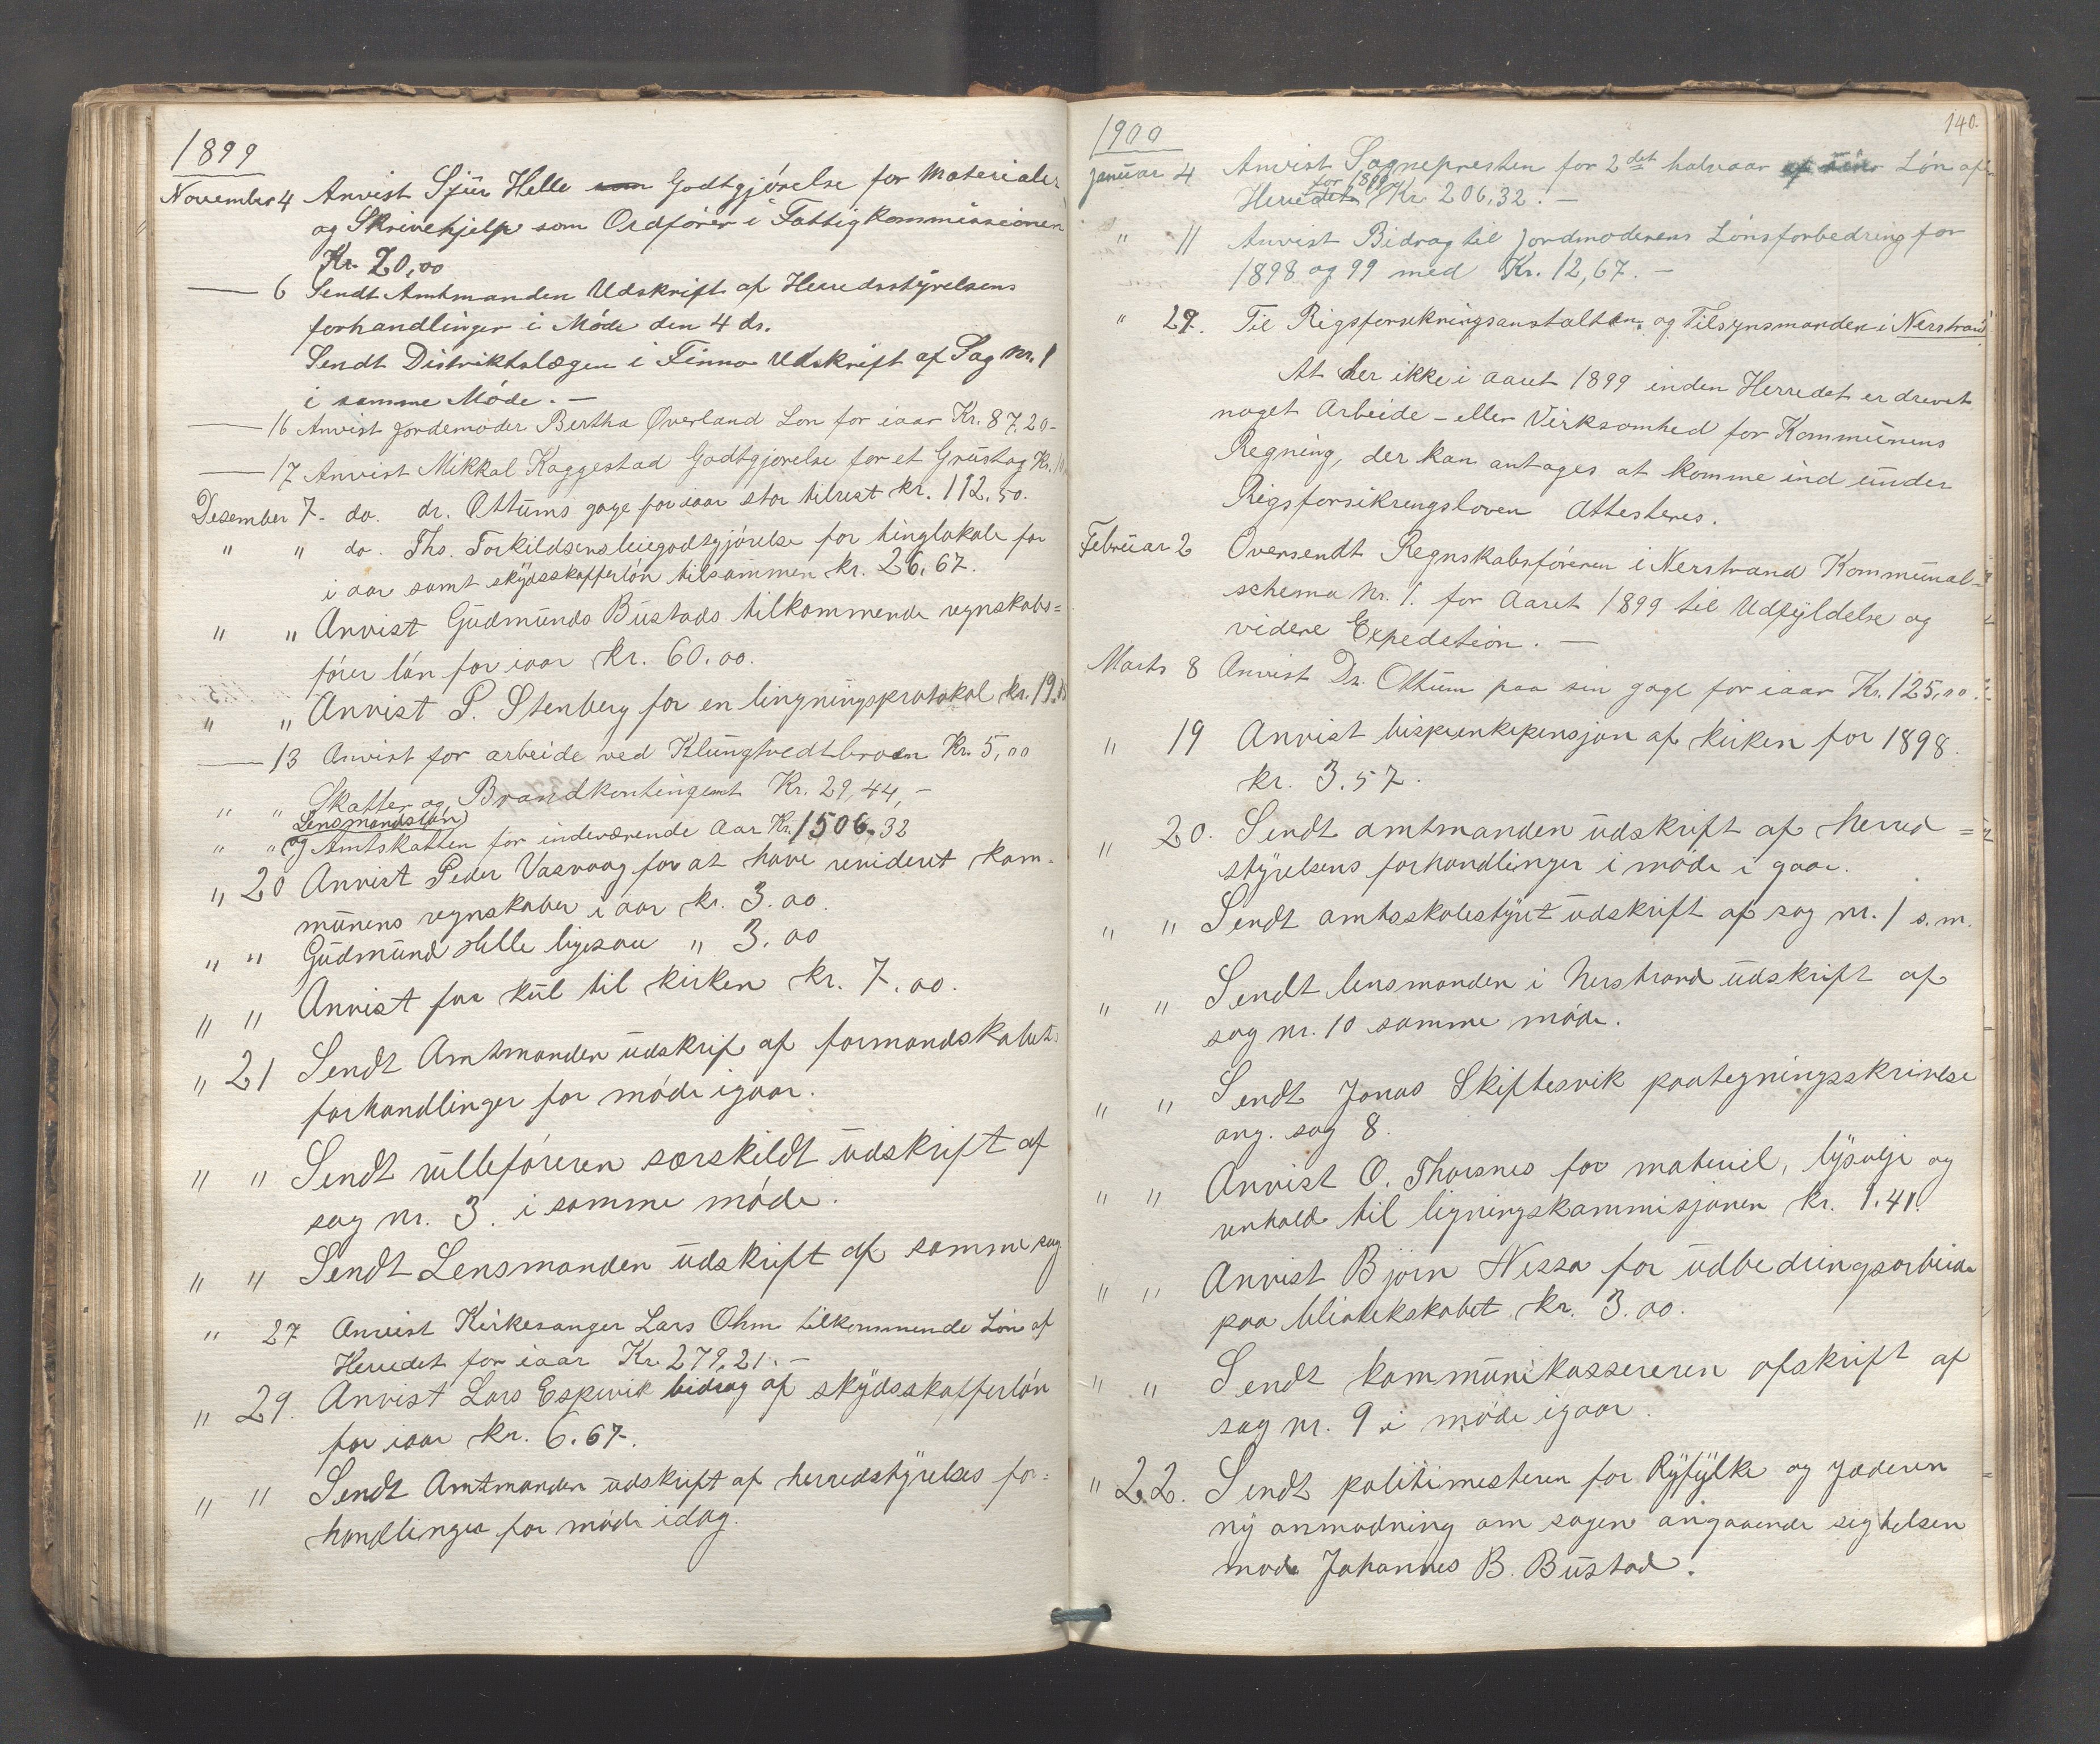 1899
November 4 Anvist Sjur Helle Godtgjørelse for Materialer
og Skrivehjelp som Ordfører i Fattigkommissionen
Kr. 20,00
— 6 Sendt Amtmanden Udskrift af Herredsstyrelsens
forhandlinger i Møde den 4 ds.
Sendt Distriktslægen i Finnø Udskrift af Sag Nr. 1
i samme Møde. —
— 16 Anvist Jordemoder Bertha Øverland Løn for iaar Kr. 87,20 -
— 17 Anvist Mikkal Kaggestad Godtgjørelse for et Grustag Kr.
Desember 7. do. dr. Ottums gage for iaar stor tilrest kr. 112.50.
" " do. Ths. Torkildsens leiegodtgjørelse for tinglokale for
i aar samt skydsskafferløn tilsammen kr. 26.67.
" " Anvist Gudmunds Bustads tilkommende regnskabs=
fører løn for iaar kr. 60.00.
" " Anvist P. Stenberg for en lingningsprotokol kr. 19.
— 13 Anvist for arbeide ved Klungtvedtbroen Kr. 5,00
" " Skatter og Brandkontingent Kr. 29,44, —
Lensmandsløn
" " og Amtskatten for indeværende Aar Kr. 1506,32
" 20 Anvist Peder Vasvaag for at have revideret kom-
munens regnskaber i aar kr. 3.00.
" " Gudmund Helle ligesaa " 3.00
" " Anvist for kul til kirken kr. 7.00.
" 21 Sendt Amtmanden udskrif af formandskabets
forhandlinger for møde igaar.
" " Sendt rulleføreren særskildt udskrift af
sag nr. 3. i samme møde.
" " Sendt Lensmanden udskrift af samme sag
" 27 Anvist Kirkesanger Lars Ohm tilkommende Løn af
Herredet for iaar Kr. 279,21. —
" 29. Anvist Lars Espevik bidrag af skydsskafferløn
for iaar kr. 6.67.
" " Sendt Amtmanden udskrift af herredstyrelses for=
handlinger for møde idag.
140.
1900
Januar 4 Anvist Sognepresten for 2det halvaar Løn af
for 1899
Herredet Kr. 206,32. —
" 11 Anvist Bidrag til Jordmoderens Lønsforbedring for
1898 og 99 med Kr. 12,67. —
" 29. Til Rigsforsikringsanstalten og Tilsynsmanden i Nerstrand
At der ikke i aaret 1899 inden Herredet er drevet
noget Arbeide - eller Virksomhed for Kommunens
Regning, der kan antages at komme ind under
Rigsforsikringsloven Attesteres.
Februar 2 Oversendt Regnskabsføreren i Nerstrand Kommunal-
schema Nr. 1. for Aaret 1899 til Udfyldelse og
videre Expedetion. —
Marts 8 Anvist Dr. Ottum paa sin gage for iaar Kr. 125,00.
" 19 Anvist bispeenkepensjon af kirken for 1898.
kr. 3.57.
" 20. Sendt amtmanden udskrift af herred=
styrelsens forhandlinger i møde i gaar.
" " Sendt amtsskolestyret udskrift af sag nr. 1 s.m.
" " Sendt lensmanden i Nerstrand udskrift af
sag nr. 10 samme møde.
" " Sendt Jonas Skiftesvik paategningsskrivelse
ang. sag 8.
" " Anvist O. Thorsnes for materiel, lysolje og
renhold til ligningskommisjonen kr. 1.41.
" " Anvist Bjørn Nessa for udbedringsarbeide
paa bliotekskabet kr. 3.00.
" " Sendt kommunikassereren afskrift af
sag nr. 9 i møde igaar.
" 22. Sendt politimesteren for Ryfylke og Jæderen
ny anmodning om sagen angaaende sigtelsen
mod Johannes B. Bustad.